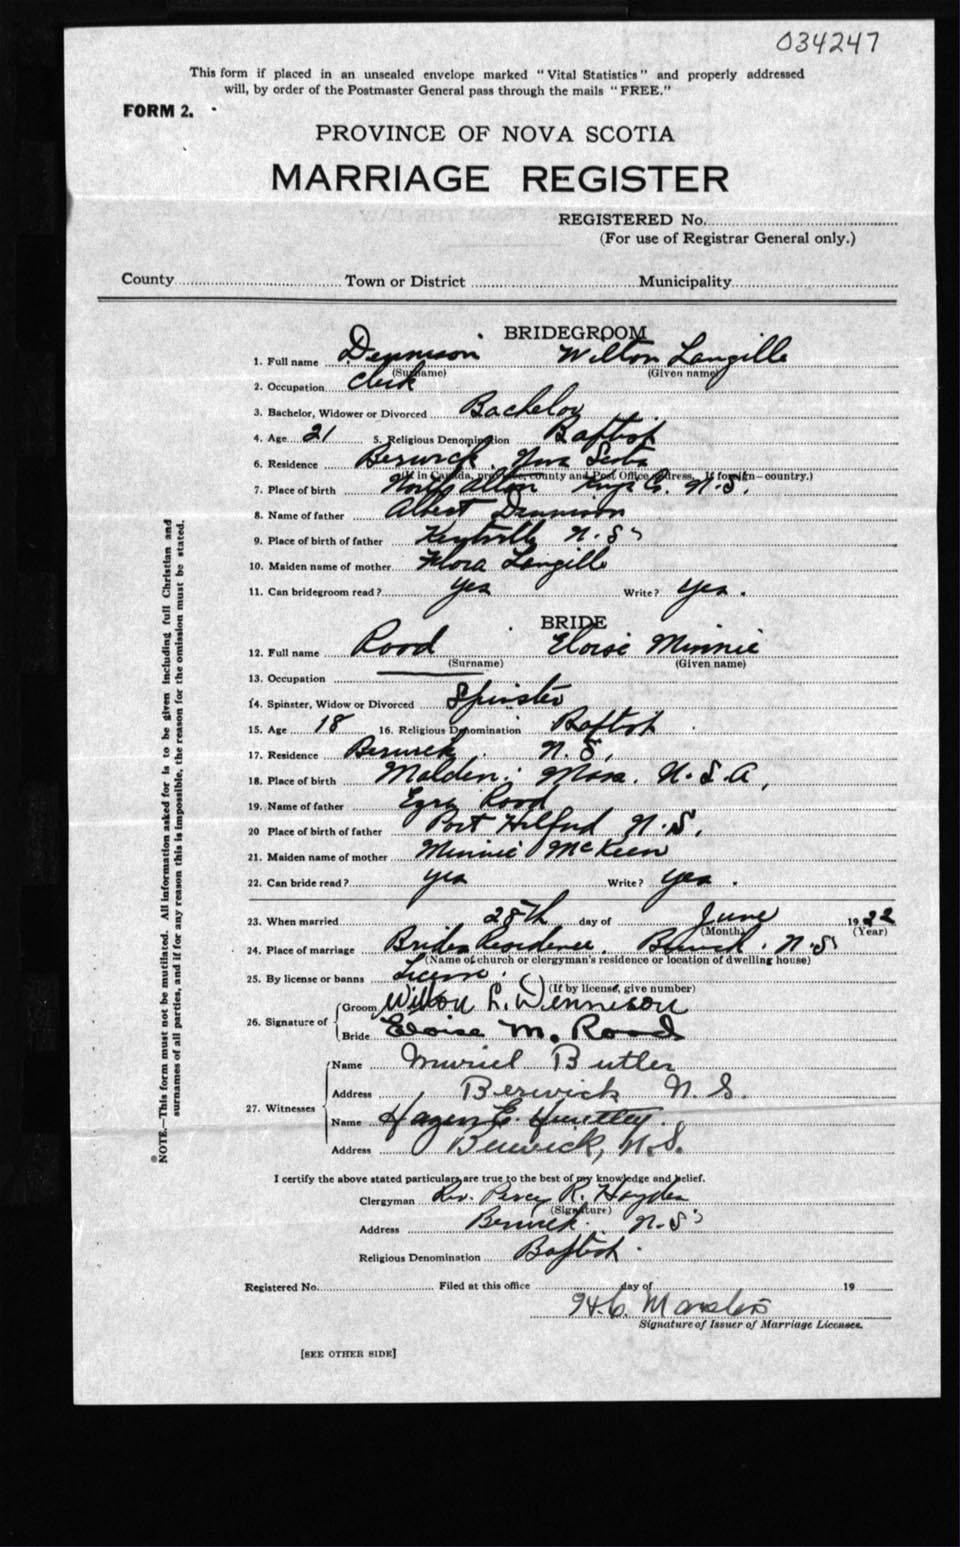 034247
This form if placed in an unsealed envelope marked "Vital Statistics" and properly addressed
will, by order of the Postmaster General pass through the mails "FREE."
FORM 2.
PROVINCE OF NOVA SCOTIA
MARRIAGE REGISTER
REGISTERED No.
(For use of Registrar General only.)
County Town or District Municipality
BRIDEGROOM
1. Full name Dennison Wilton Langille
(Surname) (Given name)
2. Occupation Clerk
3. Bachelor, Widower or Divorced Bachelor
4. Age 21 5. Religious Denomination Baptist
6. Residence Berwick Nova Scotia
(If in Canada, province, county and Post Office address. If foreign—country.)
7. Place of birth North Alton Kings Co. N.S.
8. Name of father Albert Dennison
9. Place of birth of father Kentville N.S.
10. Maiden name of mother Flora Langille
11. Can bridegroom read? yes Write? yes.
BRIDE
12. Full name Rood Eloise Minnie
(Surname) (Given name)
13. Occupation
14. Spinster, Widow or Divorced Spinster
15. Age 18 16. Religious Denomination Baptist
17. Residence Berwick N.S.
18. Place of birth Malden. Mass. U.S.A,
19. Name of father Ezra Rood
20 Place of birth of father Port Hilford N.S.
21. Maiden name of mother Minnie McKeen
22. Can bride read? yes Write? yes.
23. When married 28th day of June 1922
(Month) (Year)
24. Place of marriage Brides Residence, Berwick. N.S
(Name of church or clergyman's residence or location of dwelling house)
25. By license or banns License. ( ) (If by license, give number)
26. Signature of Groom Wilton L. Dennison
Bride Eloise M. Rood
27. Witnesses Name Muriel Butler
Address Berwick N.S.
Name Hazen E. Huntley.
Address Berwick, N.S.
I certify the above stated particulars are true to the best of my knowledge and belief.
Clergyman Rev. Percy R. Hayden
(Signature)
Address Berwick. N.S.
Religious Denomination Baptist.
Registered No. Filed at this office day of 19
Signature of Issuer of Marriage Licenses.
[SEE OTHER SIDE]
NOTE.—This form must not be mutilated. All information asked for is to be given including full Christian and
surnames of all parties, and if for any reason this is impossible, the reason for the omission must be stated.